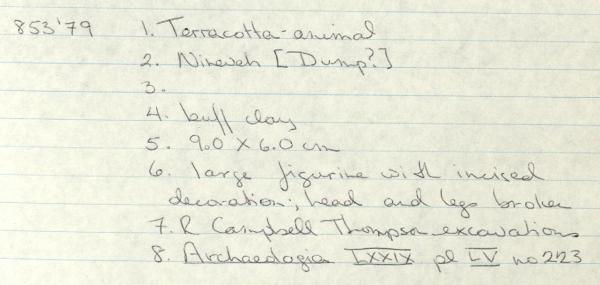 853'79 1. Terracotta - animal
2. Nineveh [Dump?]
3.
4. buff clay
5. 9.0 X 6.0 cm
6. large figurine with incised
decoration; head and legs broken
7. R Campbell Thompson excavations
8. Archaeologia LXXIX pl LV no 223